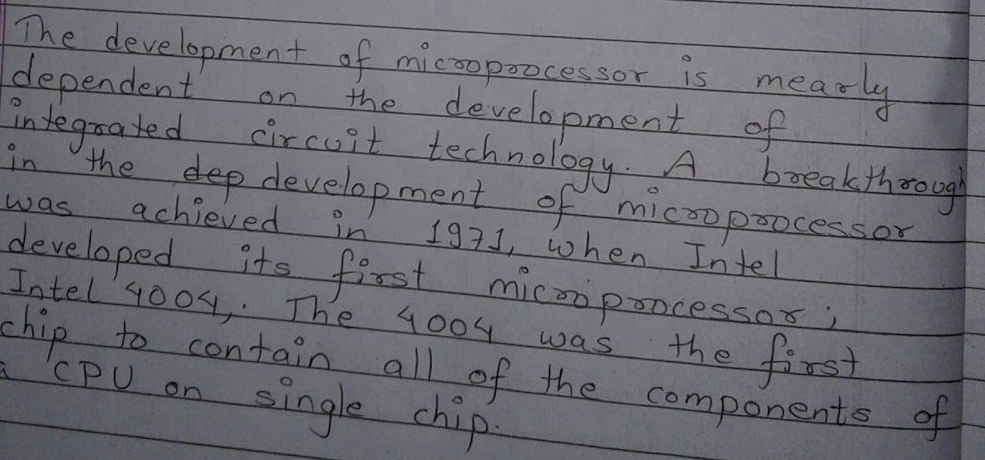 The development of microprocessor is mearly
dependent on the development of
integrated circuit technology. A breakthrough
in the dep development of microprocessor
was achieved in 1971, when Intel
developed its first microprocessor;
Intel 4004,. The 4004 was the first
chip to contain all of the components of
a CPU on single chip.